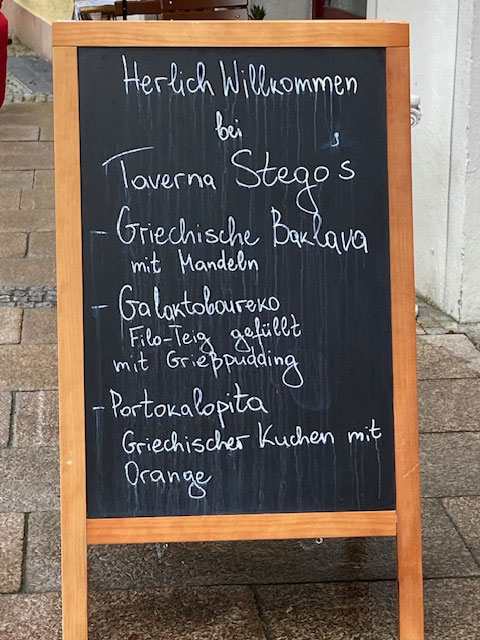 Herlich Willkommen
bei
Taverna Stego's
- Griechische Baklava
mit Mandeln
- Galaktoboureko
Filo-Teig gefüllt
mit Grießpudding
- Portokalopita
Griechischer Kuchen mit
Orange